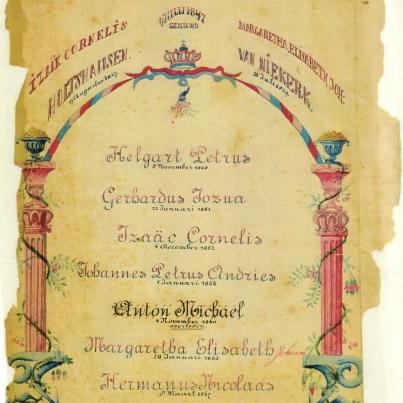 IZAÄK CORNELIS
HOLTSHAUSEN.
JULIJ 1847
GEHUWD
MARGARETHA, ELISABETH, JOH:
VAN NIEKERK.
Helgart Petrus
8 November 1848
Gerhardus Jozua
22 Januari 1851
Izaäc Cornelis
4 December 1852
Johannes Petrus Andries
Januari 1858
Anton Michaël
November 1860
overleden
Margaretha Elisabeth Johanna
28 Januari 1863
Hermanus Nicolaas
Maart 1867